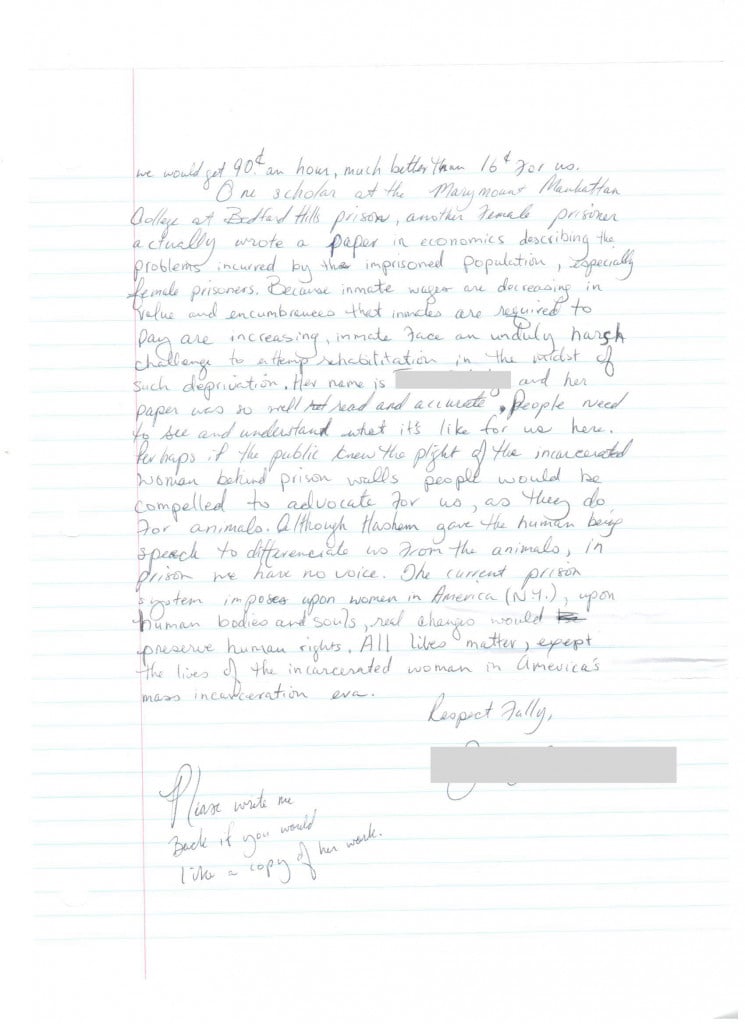 we would get 90¢ an hour, much better than 16¢ for us.
One scholar at the Marymount Manhattan
College at Bedford Hills prison, another female prisoner
actually wrote a paper in economics describing the
problems incurred by the imprisoned population, especially
female prisoners. Because inmate wages are decreasing in
value and encumbrances that inmates are required to
pay are increasing, inmate face an unduly harsh
challenge to attemp rehabilitation in the midst of
such deprivation. Her name is and her
paper was so well read and accurate. People need
to see and understand what it's like for us here.
Perhaps if the public knew the plight of the incarcerated
woman behind prison walls people would be
compelled to advocate for us, as they do
for animals. Although Hashem gave the human being
speech to differenciate us from the animals, in
prison we have no voice. The current prison
system imposes upon women in America (N.Y.), upon
human bodies and souls, real changes would
preserve human rights. All lives matter, except
the lives of the incarcerated woman in America's
mass incarceration era.
Respect Fully,
Please write me
Back if you would
like a copy of her work.